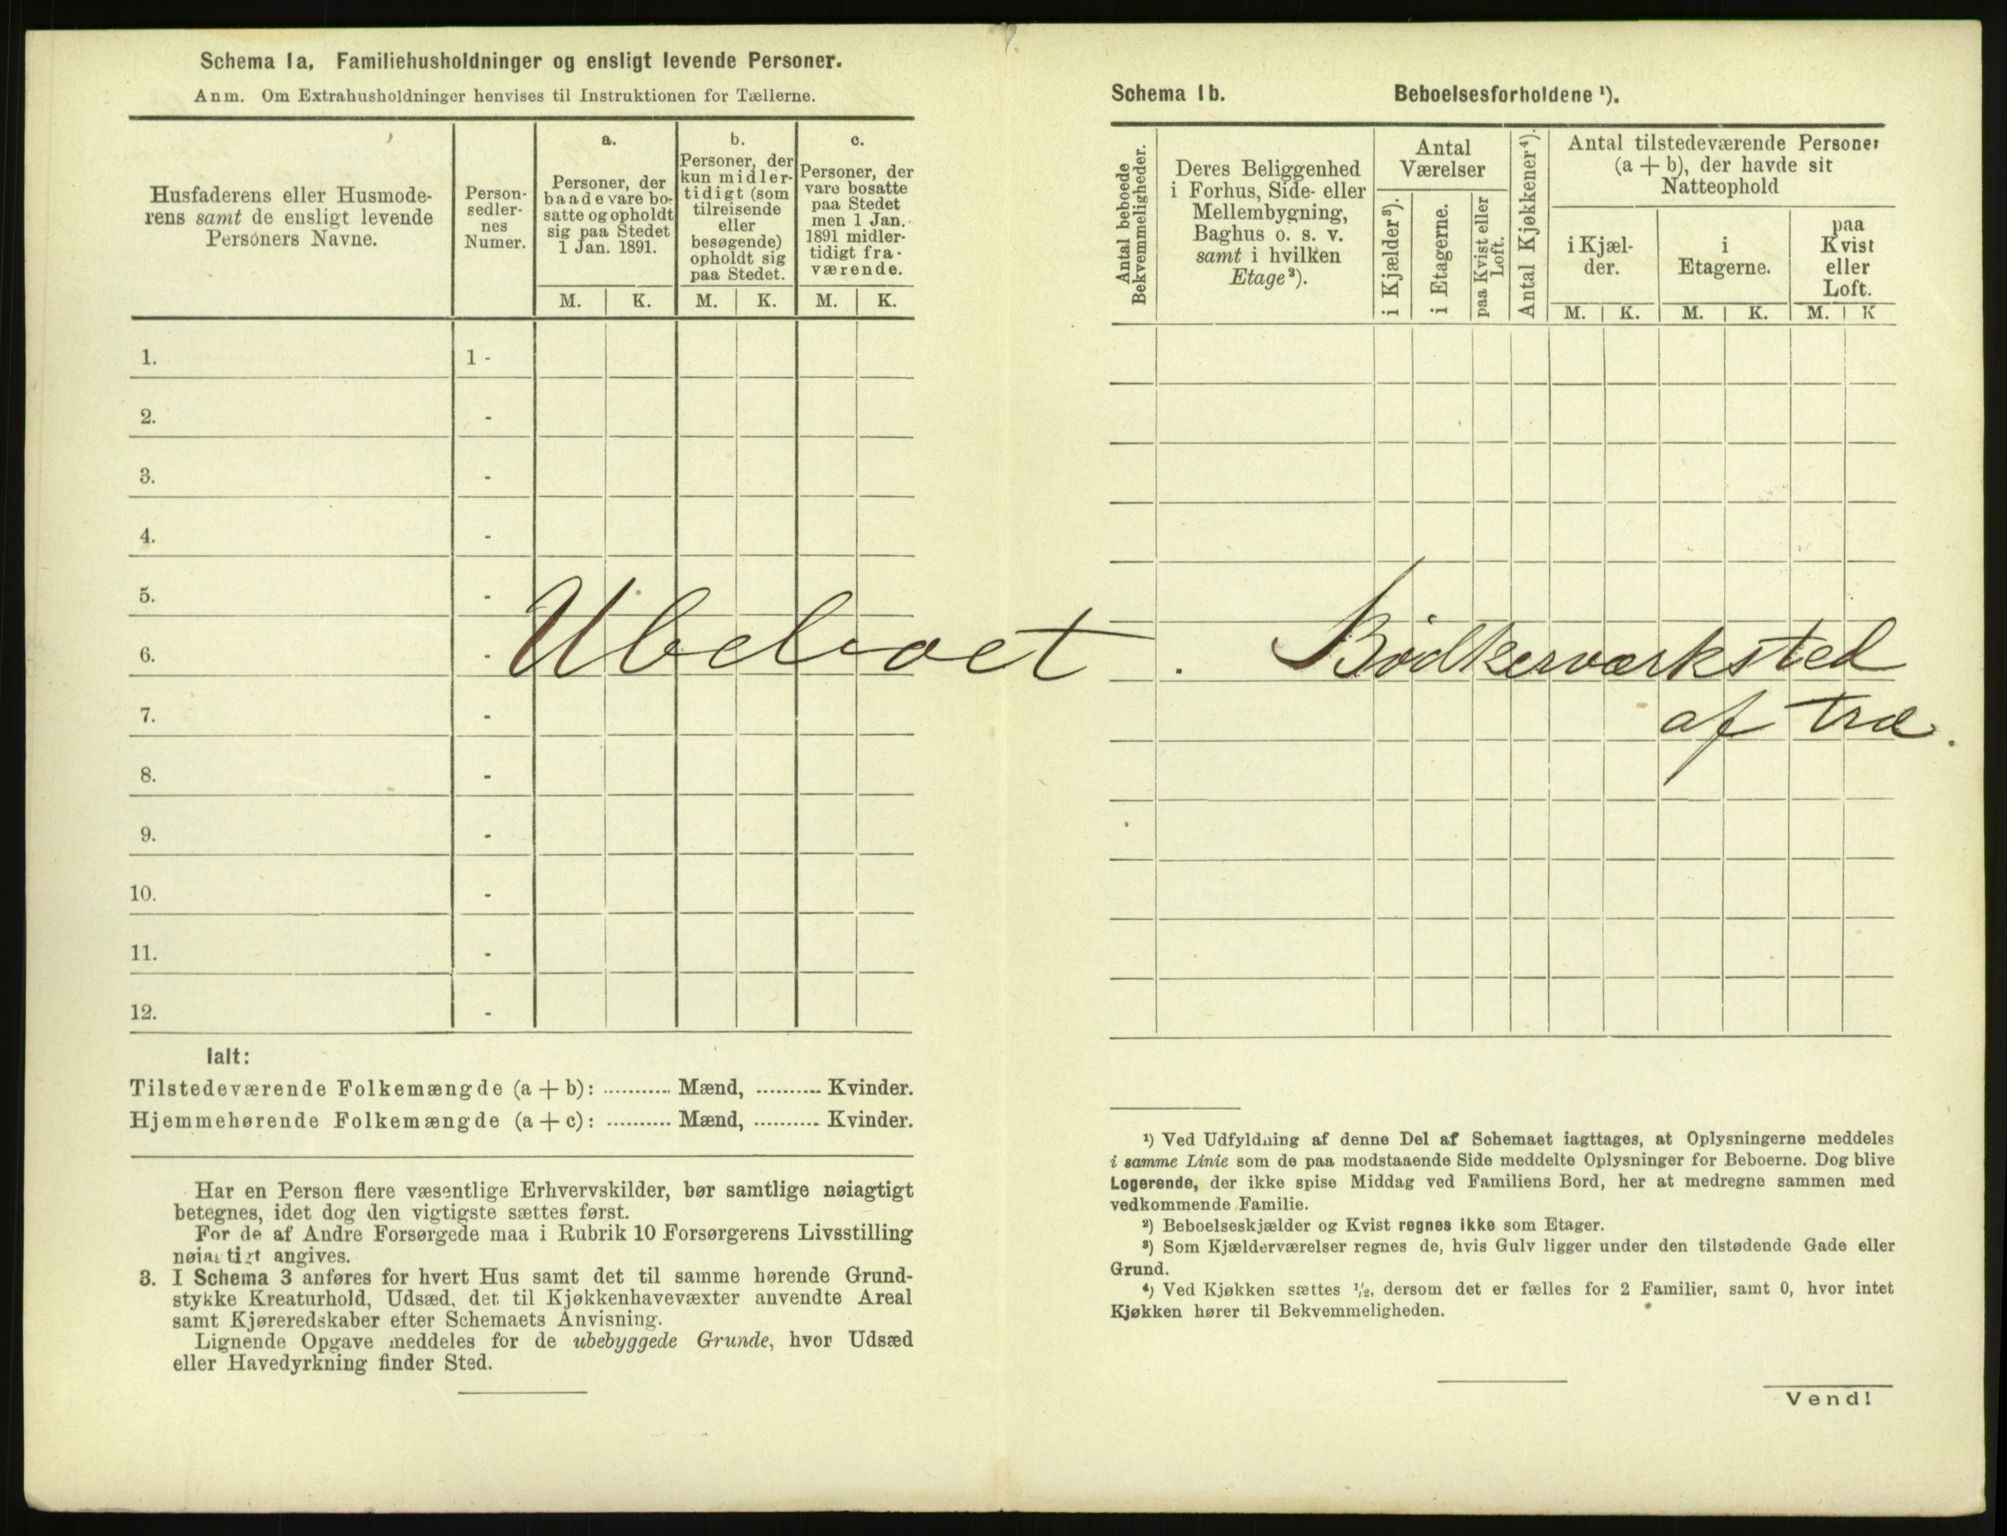 Schema Ia, Familiehusholdninger og ensligt levende Personer.
Anm. Om Extrahusholdninger henvises til Instruktionen for Tællerne.
Husfaderens eller Husmode-
rens samt de ensligt levende
Personers Navne.
Person-
sedler-
nes
Numer.
a.
Personer, der
baade vare bo-
satte og opholdt
sig paa Stedet
1 Jan. 1891.
b.
Personer, der
kun midler-
tidigt (som
tilreisende
eller
besøgende)
opholdt sig
paa Stedet.
c.
Personer, der
vare bosatte
paa Stedet
men 1 Jan.
1891 midler-
tidigt fra-
værende.
M. K. M. K. M. K.
1. 1 -
2. -
3. -
4. -
5. -
6. -
7. -
8. -
9. -
10. -
11. -
12. -
Ubeboet.
Ialt:
Tilstedeværende Folkemængde (a + b): ........... Mænd, .......... Kvinder.
Hjemmehørende Folkemængde (a + c): .......... Mænd, .......... Kvinder.
Har en Person flere væsentlige Erhvervskilder, bør samtlige nøiagtigt
betegnes, idet dog den vigtigste sættes først.
For de af Andre Forsørgede maa i Rubrik 10 Forsørgerens Livsstilling
nøiagtigt angives.
3. I Schema 3 anføres for hvert Hus samt det til samme hørende Grund-
stykke Kreaturhold, Udsæd, det til Kjøkkenhavevæxter anvendte Areal
samt Kjøreredskaber efter Schemaets Anvisning.
Lignende Opgave meddeles for de ubebyggede Grunde, hvor Udsæd
eller Havedyrkning finder Sted.
Schema Ib. Beboelsesforholdene ¹).
Antal beboede
Bekvemmeligheder.
Deres Beliggenhed
i Forhus, Side- eller
Mellembygning,
Baghus o. s. v.
samt i hvilken
Etage²).
Antal
Værelser
i Kjælder³).
i Etagerne.
paa Kvist eller
Loft.
Antal Kjøkkener⁴).
Antal tilstedeværende Personer
(a + b), der havde sit
Natteophold
i Kjæl-
der.
i
Etagerne.
paa
Kvist
eller
Loft.
M. K. M. K. M. K
Bødkerværksted
af træ.
¹) Ved Udfyldning af denne Del af Schemaet iagttages, at Oplysningerne meddeles
i samme Linie som de paa modstaaende Side meddelte Oplysninger for Beboerne. Dog blive
Logerende, der ikke spise Middag ved Familiens Bord, her at medregne sammen med
vedkommende Familie.
²) Beboelseskjælder og Kvist regnes ikke som Etager.
³) Som Kjælderværelser regnes de, hvis Gulv ligger under den tilstødende Gade eller
Grund.
⁴) Ved Kjøkken sættes ½, dersom det er fælles for 2 Familier, samt 0, hvor intet
Kjøkken hører til Bekvemmeligheden.
Vend!